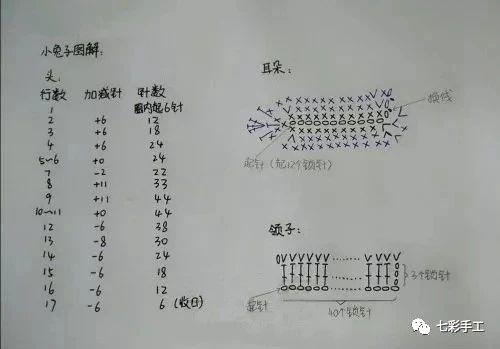 小兔子图解:
头:
行数 加减针 针数
1 圈内起6针
2 +6 12
3 +6 18
4 +6 24
5~6 +0 24
7 -2 22
8 +11 33
9 +11 44
10~11 +0 44
12 -6 38
13 -8 30
14 -6 24
15 -6 18
16 -6 12
17 -6 6 (收口)
耳朵:
换线
起针(起12个锁针)
领子:
3个锁针
起针
40个锁针
七彩手工